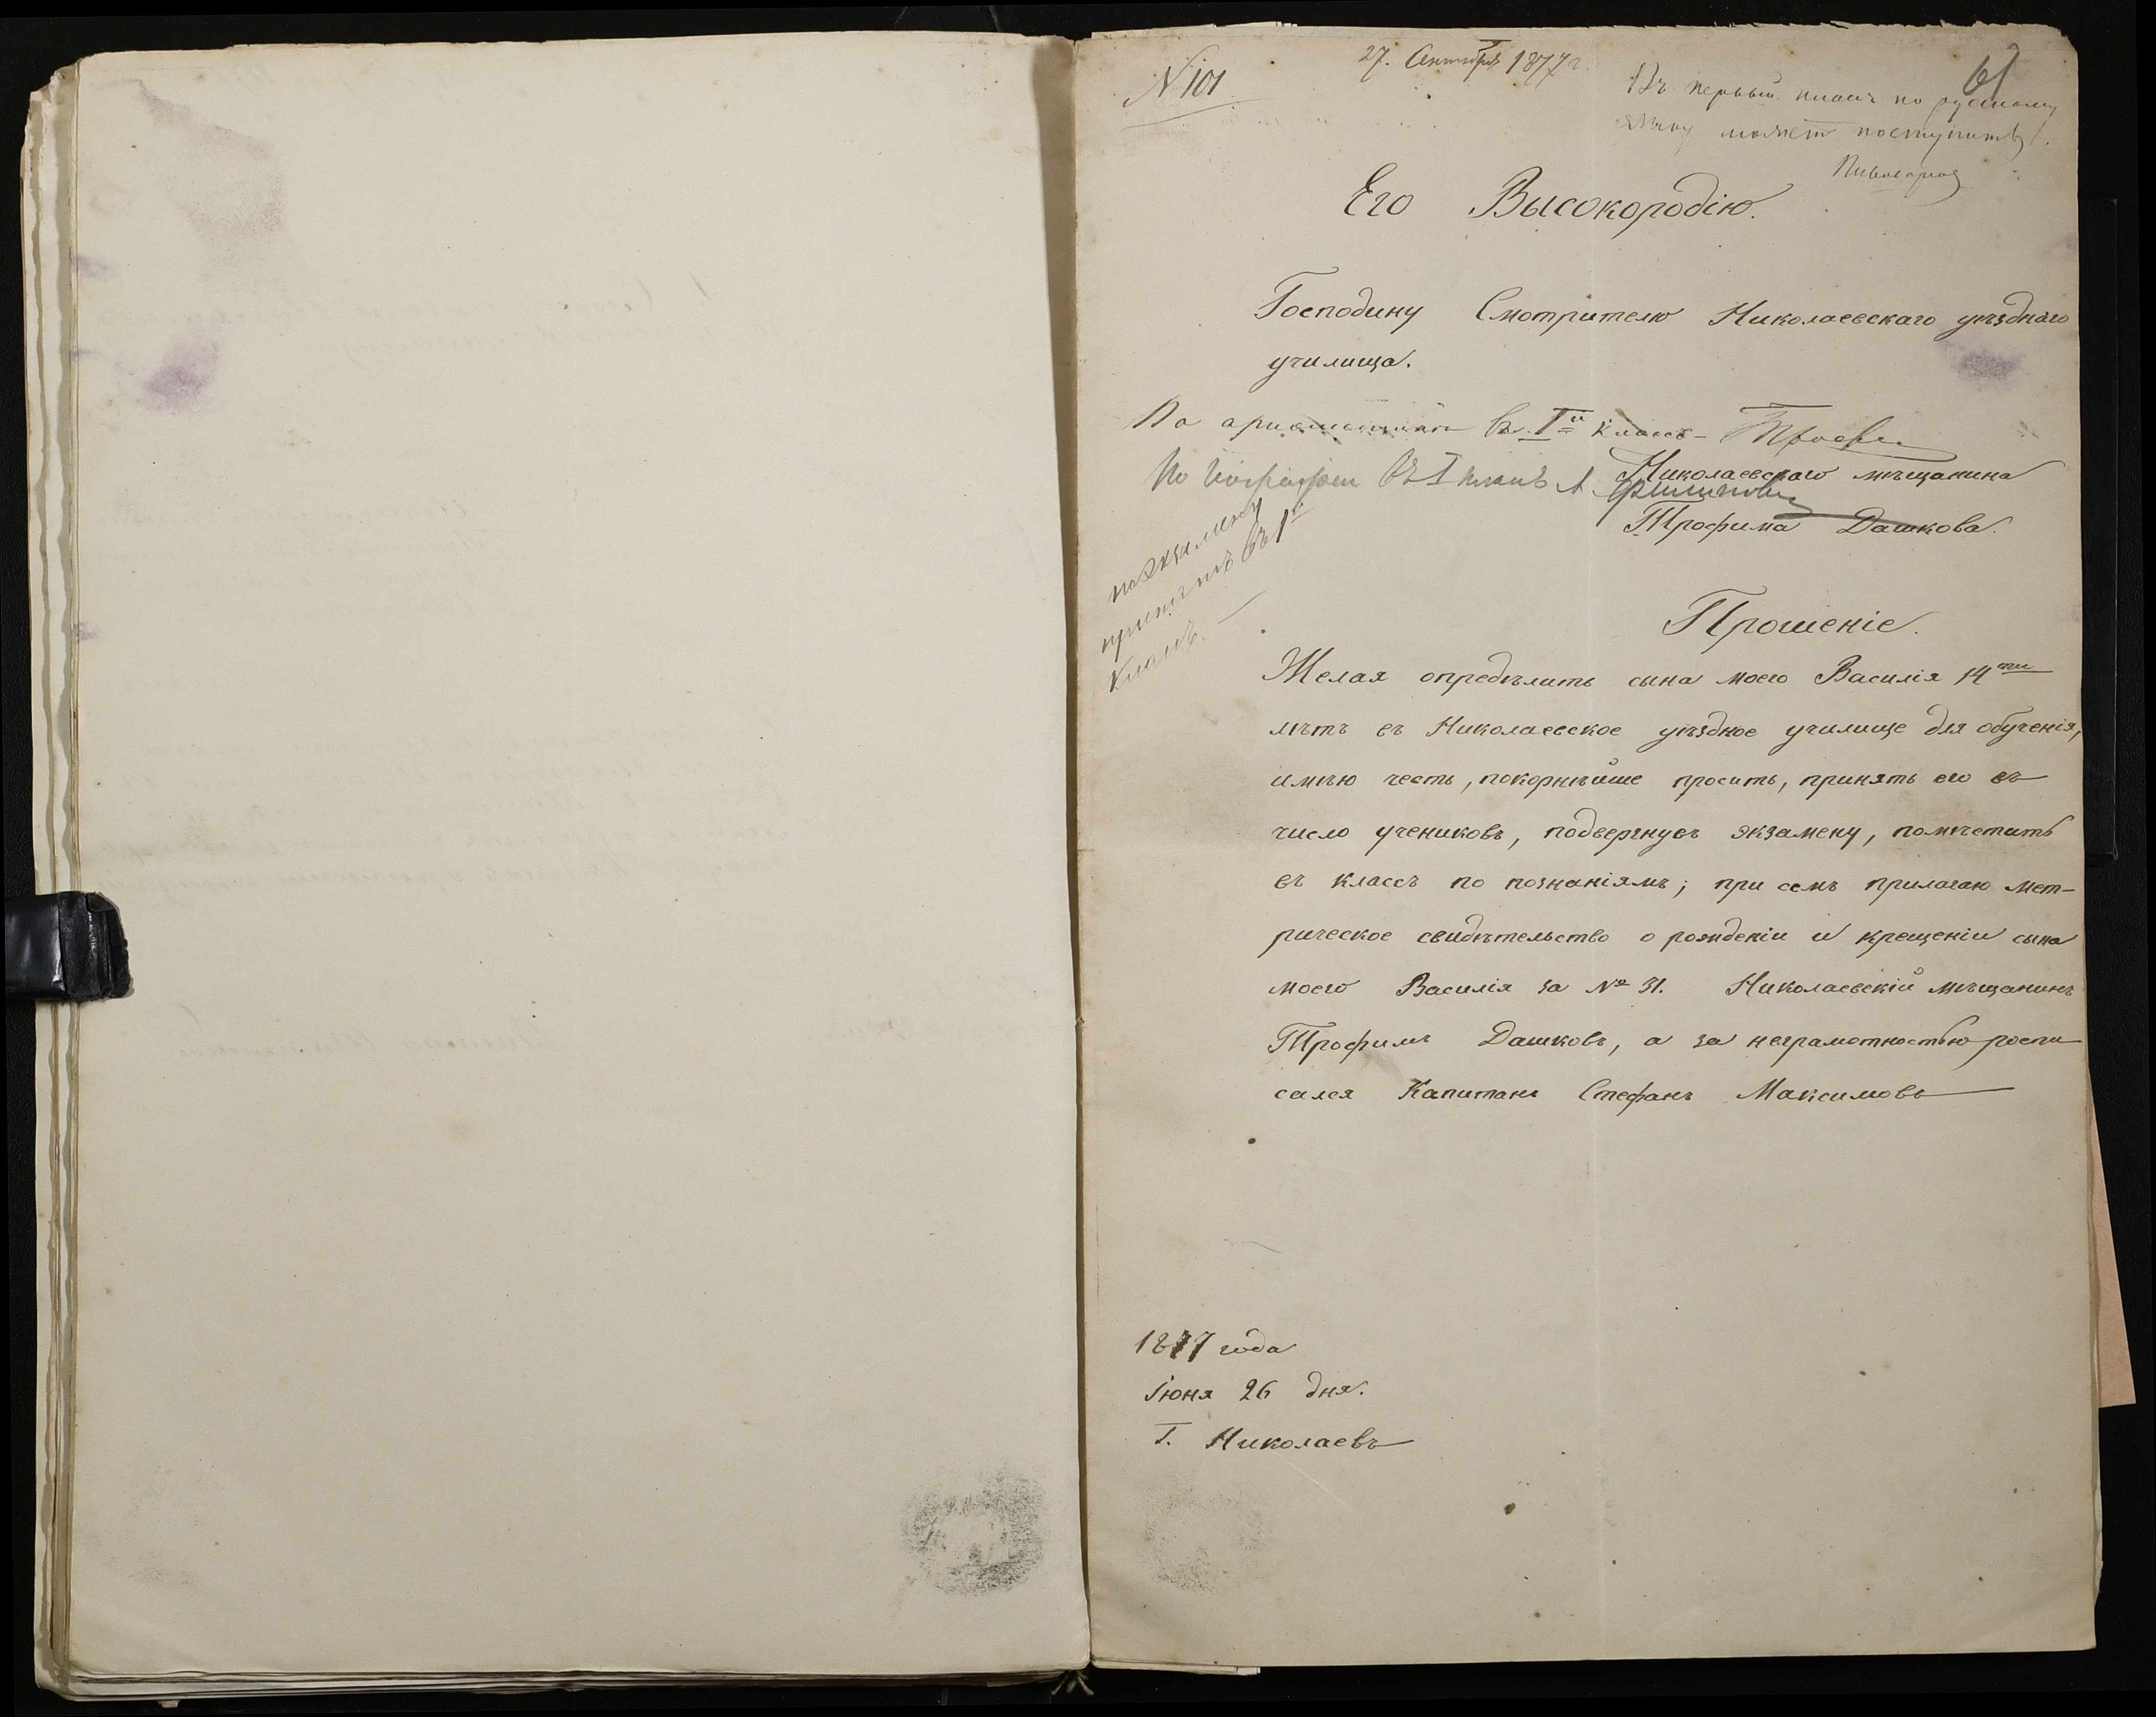 N 101
27. Сентября 1877 г.
61
Въ первый классъ по русскому
языку может поступить.
Его Высокородію.
Господину Смотрителю Николаевскаго уѣзднаго
училища.
По ариѳметикѣ въ I й классъ
По Географіи въ I классъ А. Филиповъ
Николаевскаго мѣщанина
Трофима Дашкова.
по экзамену
принятъ въ 1й
классъ.
Прошеніе.
Желая опредѣлить сына моего Василія 14ти
лѣтъ въ Николаевское уѣздное училище для обученія,
имѣю честь, покорнѣйше просить, принять его въ
число учениковъ, подвергнувъ экзамену, помѣстить
въ классъ по познаніямъ; при семъ прилагаю мет-
рическое свидѣтельство о рожденіи и крещеніи сына
моего Василія за № 31. Николаевскій мѣщанинъ
Трофимъ Дашковъ, а за неграмотностью роспи
сался Капитанъ Стефанъ Максимовъ
1877 года
Іюня 26 дня.
Г. Николаевъ